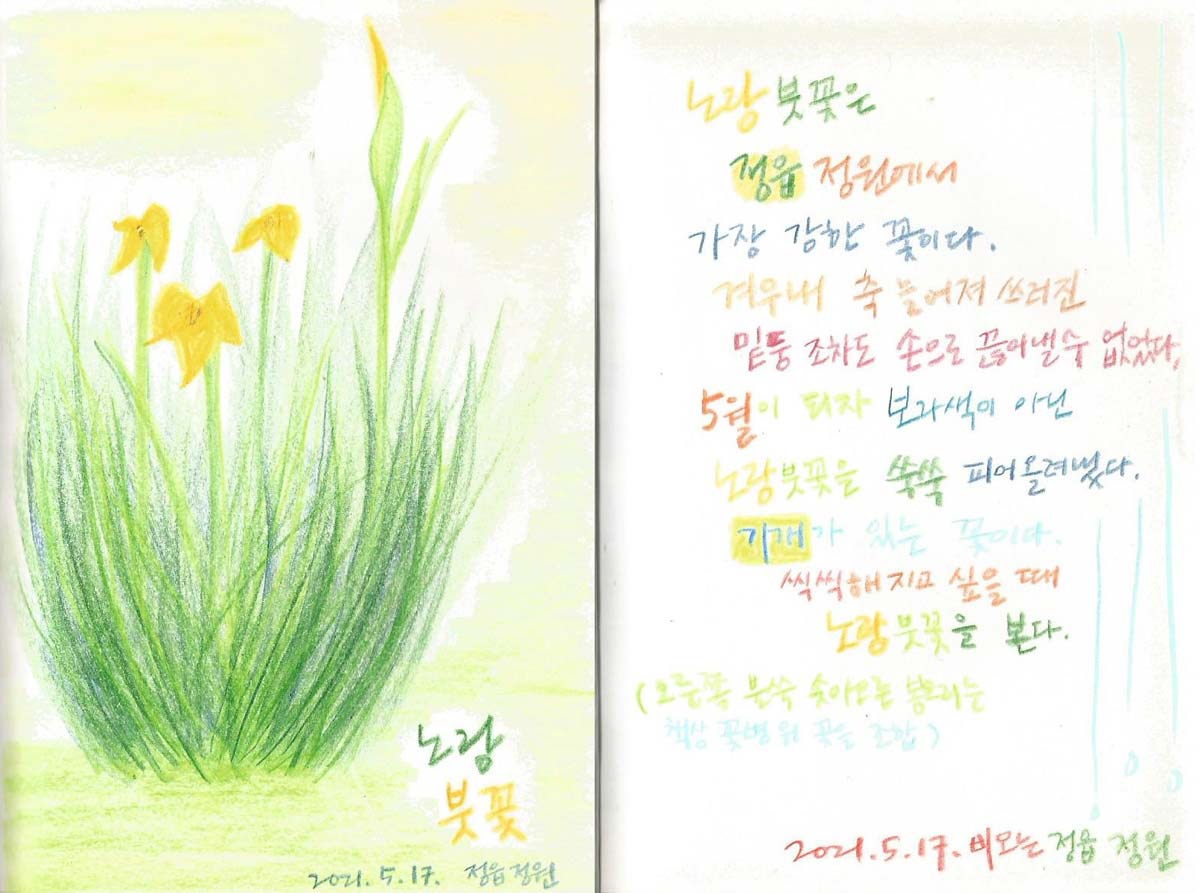 노랑
붓꽃
2021. 5. 17. 정읍 정원
노랑 붓꽃은
정읍 정원에서
가장 강한 꽃이다.
겨우내 축 늘어져 쓰러진
밑둥 조차도 손으로 끊어낼수 없었다.
5월이 되자 보라색이 아닌
노랑붓꽃을 쑥쑥 피어올려냈다.
기개가 있는 꽃이다.
씩씩해지고 싶을 때
노랑붓꽃을 본다.
(오른쪽 불쑥 솟아오른 봉오리는
책상 꽃병 위 꽃을 조합)
2021. 5. 17. 비오는 정읍 정원